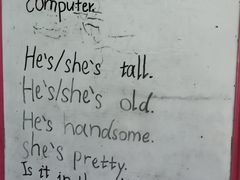 computer.
He's/she's tall.
He's/she's old.
He's handsome.
she's pretty.
Is it in the